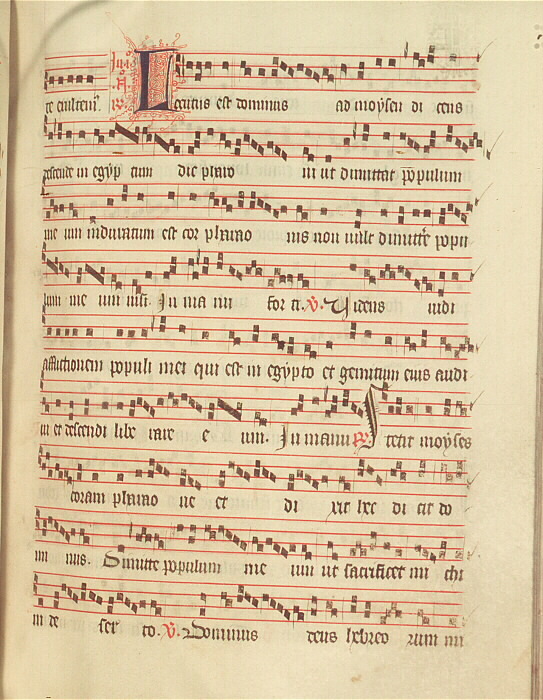 Locutus est dominus ad moysen di cens
descende in egyp tum dic phara o ni ut dimittat populum
me um induratum est cor pharao nis non uult dimitte popu
lum me um nisi In ma nu for ti. V. Uidens uidi
afflictionem populi mei qui est in egypto et gemitum eius audi
ui et descendi libe rare e um. In manu R. Stetit moyses
coram pharao ne et di xit hec di cit do
mi nus. Dimitte populum me um ut sacrificet mi chi
in de ser to. V. Dominus deus hebreo rum mi